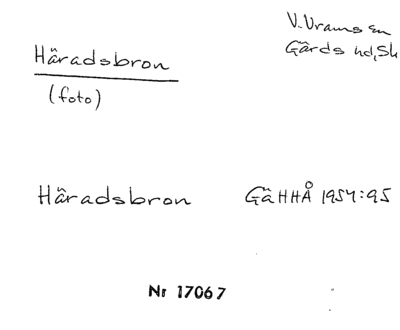 Häradsbron
(foto)
V. Vrams sn
Gärds hd, Sk
Häradsbron GäHHÅ 1954:95
Nr 17067